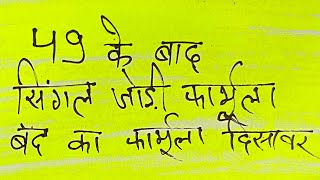 49 के बाद
सिंगल जोड़ी फार्मूला
बंद का फार्मूला दिसावर